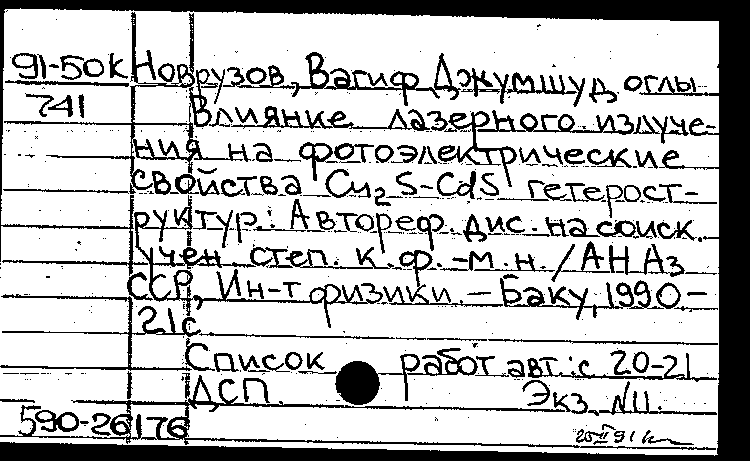 91-50к Новрузов, Вагиф Джумшуд оглы
741 Влиянке лазерного излуче-
ния на фотоэлектрические
свойства Cu₂S-CdS гетерост-
руктур.: Автореф. дис. на соиск.
учен. степ. к. ф.-м. н. / АН Аз
ССР, Ин-т физики. - Баку, 1990.-
21с.
Список работ авт.: с 20-21
ДСП. Экз. N11.
590-26176